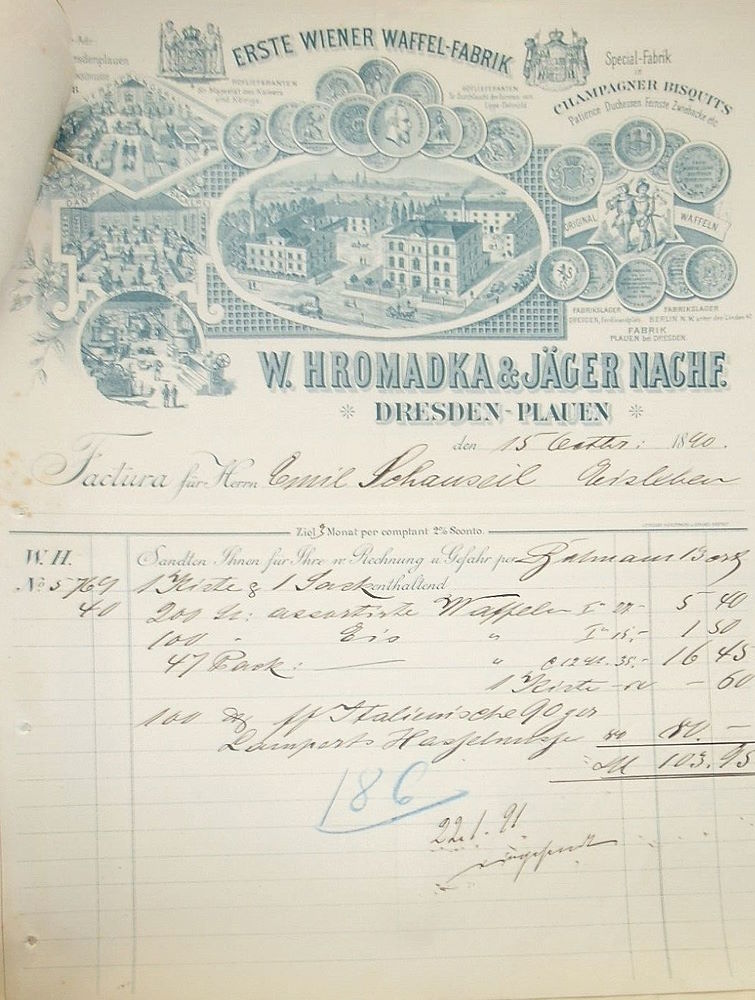 ERSTE WIENER WAFFEL-FABRIK
HOFLIEFERANTEN
Sr. Majestät des Kaisers
und Königs.
HOFLIEFERANTEN
Sr. Durchlaucht des Fürsten von
Lippe-Detmold
Special-Fabrik
in
CHAMPAGNER BISQUITS
Patience Duchesses, feinste Zwiebacke etc.
ORIGINAL WAFFELN
FABRIKSLAGER FABRIKSLAGER
DRESDEN, Ferdinandplatz BERLIN N.W. unter den Linden
FABRIK
PLAUEN bei DRESDEN
W. HROMADKA & JÄGER NACHF.
DRESDEN-PLAUEN
den 15 Octbr: 1890.
Factura für Herrn Emil Schauseil Eisleben
Ziel 3 Monat per comptant 2% Sconto.
W. H. Sandten Ihnen für Ihre w. Rechnung u. Gefahr per
No 5769 1 Kiste & 1 Sack enthaltend
40 200 St: assortirte Waffeln 5 40
100 " Eis " 1 50
47 Pack: — " 16 45
1 Kiste - 60
100 ff Italienische 90er
Lamperts Haselnüsse 80 80. -
M 103.95
186
22.1.91